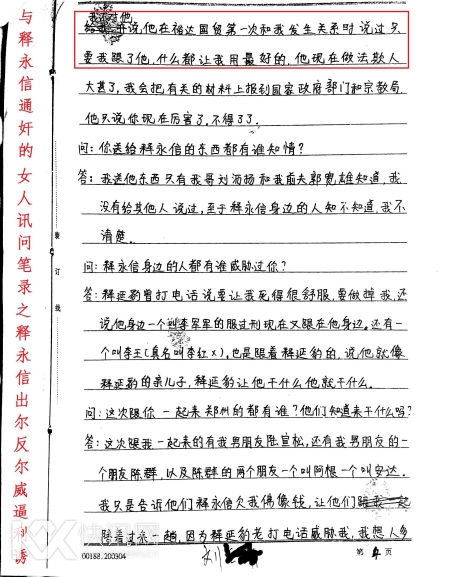 与释永信通奸的女人讯问笔录之释永信出尔反尔威逼利诱
给我,并说,他在裕达国贸第一次和我发生关系时说过只
要我跟了他,什么都让我用最好的,他现在做法欺人
太甚了,我会把有关的材料上报到国家政府部门和宗教局,
他只说你现在厉害了,不得了了.
问:你送给释永信的东西都有谁知情?
答:我送他东西只有我哥刘汤扬和我前夫郭宽雄知道,我
没有给其他人说过,至于释永信身边的人知不知道,我不
清楚.
问:释永信身边的人都有谁威胁过你?
答:释延豹曾打电话说要让我死得很舒服,要做掉我,还
说他身边一个叫李军军的服过刑现在又跟在他身边.还有一
个叫李王(真名叫李红×),也是跟着释延豹的,说他就像
释延豹的亲儿子,释延豹让他干什么他就干什么.
问:这次跟你一起来郑州的都有谁?他们知道来干什么吗?
答:这次跟我一起来的有我男朋友陆宜松,还有我男朋友的一
个朋友陈群,以及陈群的两个朋友一个叫阿根一个叫安达.
我只是告诉他们释永信欠我佛像钱,让他们一起
陪着过来一趟,因为释延豹老打电话威胁我,我想人多
装订线
00188.200304
第4页